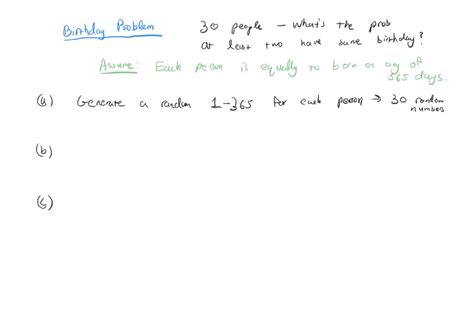 Birthday Problem 30 people – What's the prob
at least two have same birthday?
Assume: Each person is equally to born on any of
365 days.
(a) Generate a random 1-365 for each person → 30 random
numbers
(b)
(c)